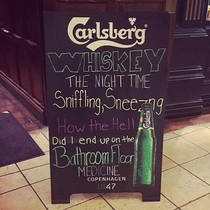 Carlsberg
WHISKEY
THE NIGHT TIME
Sniffling, Sneezing
How the Hell
Did I end up on the
Bathroom Floor
MEDICINE
COPENHAGEN
1847